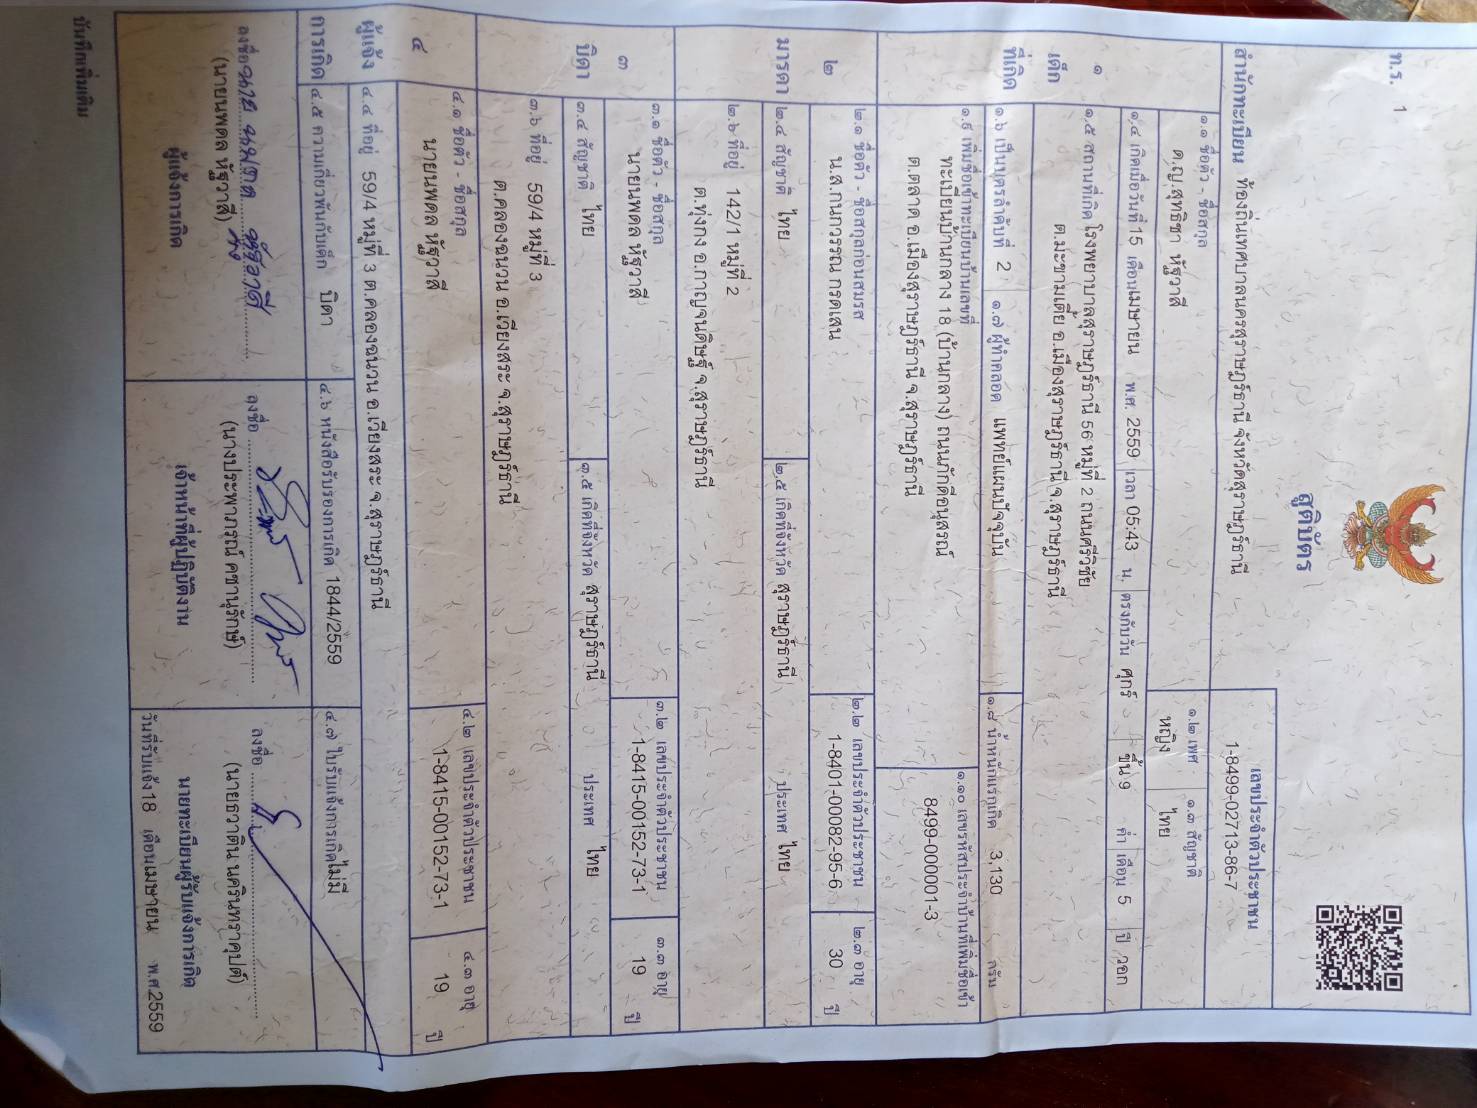 ท.ร. 1
สูติบัตร
สำนักทะเบียน ท้องถิ่นเทศบาลนครสุราษฎร์ธานี จังหวัดสุราษฎร์ธานี
เลขประจำตัวประชาชน
1-8499-02713-86-7
๑
เด็ก
๑.๑ ชื่อตัว - ชื่อสกุล
ด.ญ.สุทธิชา หัฐวาสี
๑.๒ เพศ
หญิง
๑.๓ สัญชาติ
ไทย
๑.๔ เกิดเมื่อวันที่ 15 เดือนเมษายน พ.ศ. 2559 เวลา 05:43 น. ตรงกับวัน ศุกร์ ขึ้น 9 ค่ำ เดือน 5 ปี วอก
๑.๕ สถานที่เกิด โรงพยาบาลสุราษฎร์ธานี 56 หมู่ที่ 2 ถนนศรีวิชัย
ต.มะขามเตี้ย อ.เมืองสุราษฎร์ธานี จ.สุราษฎร์ธานี
ที่เกิด
๑.๖ เป็นบุตรลำดับที่ 2 ๑.๗ ผู้ทำคลอด แพทย์แผนปัจจุบัน
๑.๘ น้ำหนักแรกเกิด 3,130 กรัม
๑.๙ เพิ่มชื่อเข้าทะเบียนบ้านเลขที่
ทะเบียนบ้านกลาง 18 (บ้านกลาง) ถนนภักดีอนุสรณ์
ต.ตลาด อ.เมืองสุราษฎร์ธานี จ.สุราษฎร์ธานี
๑.๑๐ เลขรหัสประจำบ้านที่เพิ่มชื่อเข้า
8499-000001-3
๒
มารดา
๒.๑ ชื่อตัว - ชื่อสกุลก่อนสมรส
น.ส.กนกวรรณ กรดเสน
๒.๒ เลขประจำตัวประชาชน
1-8401-00082-95-6
๒.๓ อายุ
30 ปี
๒.๔ สัญชาติ ไทย
๒.๕ เกิดที่จังหวัด สุราษฎร์ธานี ประเทศ ไทย
๒.๖ ที่อยู่ 142/1 หมู่ที่ 2
ต.ทุ่งกง อ.กาญจนดิษฐ์ จ.สุราษฎร์ธานี
๓
บิดา
๓.๑ ชื่อตัว - ชื่อสกุล
นายนพดล หัฐวาสี
๓.๒ เลขประจำตัวประชาชน
1-8415-00152-73-1
๓.๓ อายุ
19 ปี
๓.๔ สัญชาติ ไทย
๓.๕ เกิดที่จังหวัด สุราษฎร์ธานี ประเทศ ไทย
๓.๖ ที่อยู่ 59/4 หมู่ที่ 3
ต.คลองฉนวน อ.เวียงสระ จ.สุราษฎร์ธานี
๔
ผู้แจ้ง
การเกิด
๔.๑ ชื่อตัว - ชื่อสกุล
นายนพดล หัฐวาสี
๔.๒ เลขประจำตัวประชาชน
1-8415-00152-73-1
๔.๓ อายุ
19 ปี
๔.๔ ที่อยู่ 59/4 หมู่ที่ 3 ต.คลองฉนวน อ.เวียงสระ จ.สุราษฎร์ธานี
๔.๕ ความเกี่ยวพันกับเด็ก บิดา
๔.๖ หนังสือรับรองการเกิด 1844/2559
๔.๗ ใบรับแจ้งการเกิด ไม่มี
ลงชื่อ นาย นพดล หัฐวาสี
(นายนพดล หัฐวาสี)
ผู้แจ้งการเกิด
ลงชื่อ
(นางประพาภรณ์ คชานุรักษ์)
เจ้าหน้าที่ผู้ปฏิบัติงาน
ลงชื่อ
(นายธวาดิน นครินทราคุปต์)
นายทะเบียนผู้รับแจ้งการเกิด
วันที่รับแจ้ง 18 เดือนเมษายน พ.ศ.2559
บันทึกเพิ่มเติม